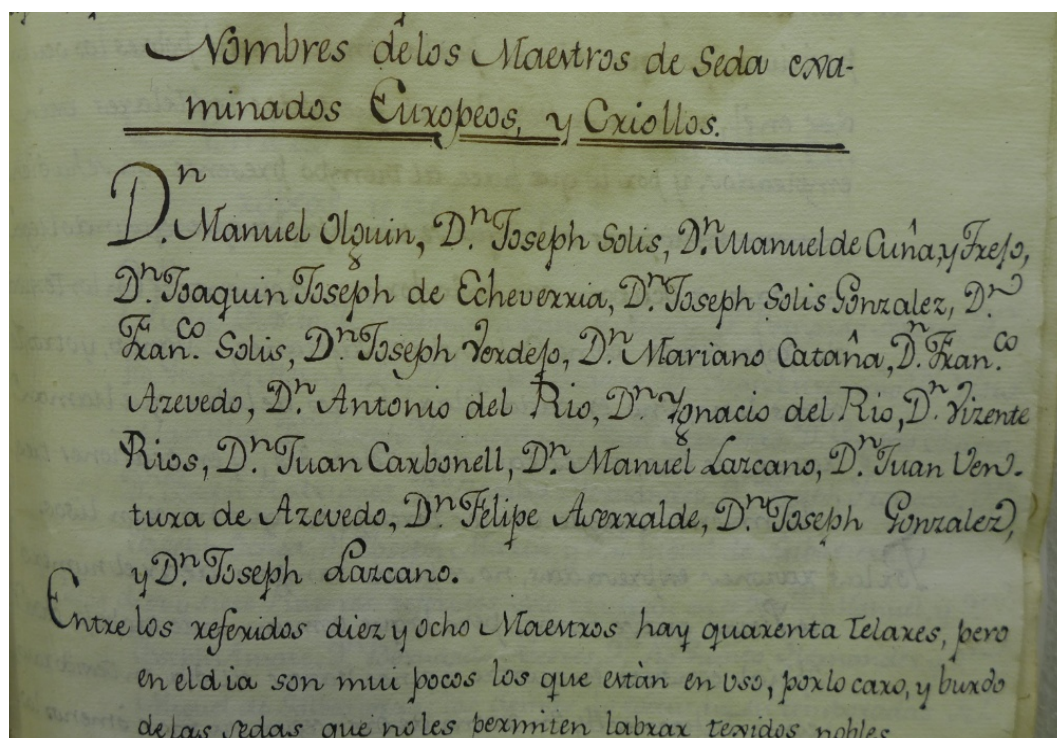 Nombres delos Maestros de Seda exa-
minados Europeos, y Criollos.
Dn. Manuel Olguin, Dn. Joseph Solis, Dn. Manuel de Cuña, y Trejo,
Dn. Joaquin Joseph de Echeverria, Dn. Joseph Solis Gonzalez, Dn.
Franco. Solis, Dn. Joseph Verdejo, Dn. Mariano Cataña, Dn. Franco.
Azevedo, Dn. Antonio del Rio, Dn. Ygnacio del Rio, Dn. Vizente
Rios, Dn. Juan Carbonell, Dn. Manuel Lazcano, Dn. Juan Ven-
tura de Azevedo, Dn. Felipe Aserralde, Dn. Joseph Gonzalez,
y Dn. Joseph Lazcano.
Entre los referidos diez y ocho Maestros hay quarenta Telares, pero
en el dia son mui pocos los que estàn en vso, por lo caro, y burdo
de las sedas que no les permiten labrar texidos nobles